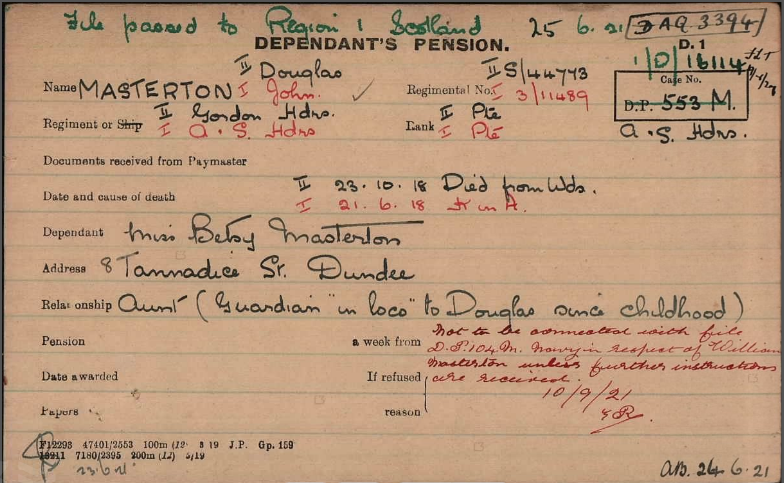 File passed to Region 1 Scotland 25.6.21 DAQ 3394
DEPENDANT'S PENSION. D.1
1/D/16114
II Douglas II S/44773 Case No.
Name MASTERTON I John. Regimental No. I 3/11489 D.P. 553 M.
II Gordon Hdrs. II Pte
Regiment or Ship I A. S. Hdrs Rank I Pte A. S. Hdrs.
Documents received from Paymaster
II 23.10.18 Died from Wds.
Date and cause of death I 21.6.18 K in A.
Dependant Miss Betsy Masterton
Address 8 Tannadice St. Dundee
Relationship Aunt (Guardian "in loco" to Douglas since childhood)
Pension a week from Not to be connected with file
D.P. 104 M. Navy in respect of William
Masterton unless further instructions
Date awarded If refused are received.
10/9/21
Papers reason
F12293 47401/2553 100m (12) 3 19 J.P. Gp. 159
7180/2395 200m (12) 5/19
23.6.21 AB. 24.6.21